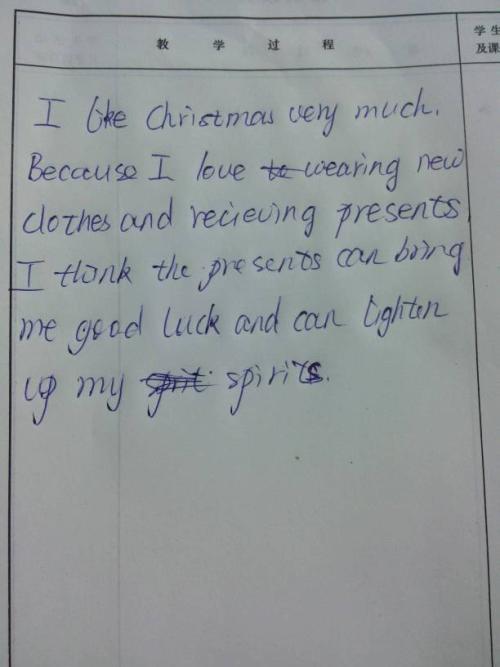 教 学 过 程
学 生
及课
I like Christmas very much.
Because I love wearing new
clothes and recieving presents
I think the presents can bring
me good luck and can lighten
up my spirits.